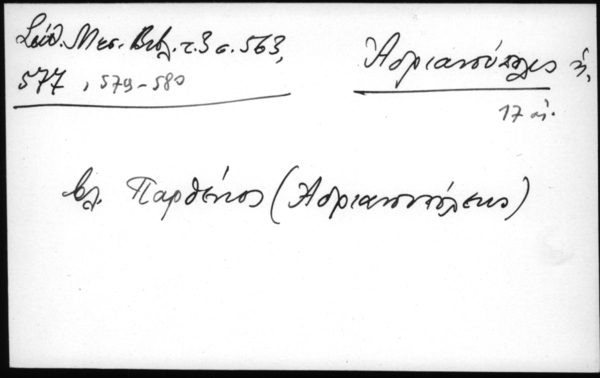 Σάθ. Μεσ. Βιβλ. τ. 3 σ. 563,
577, 579-580
Ἀδριανούπολις ἡ,
17 αἰ.
βλ. Παρθένιος (Ἀδριανουπόλεως)